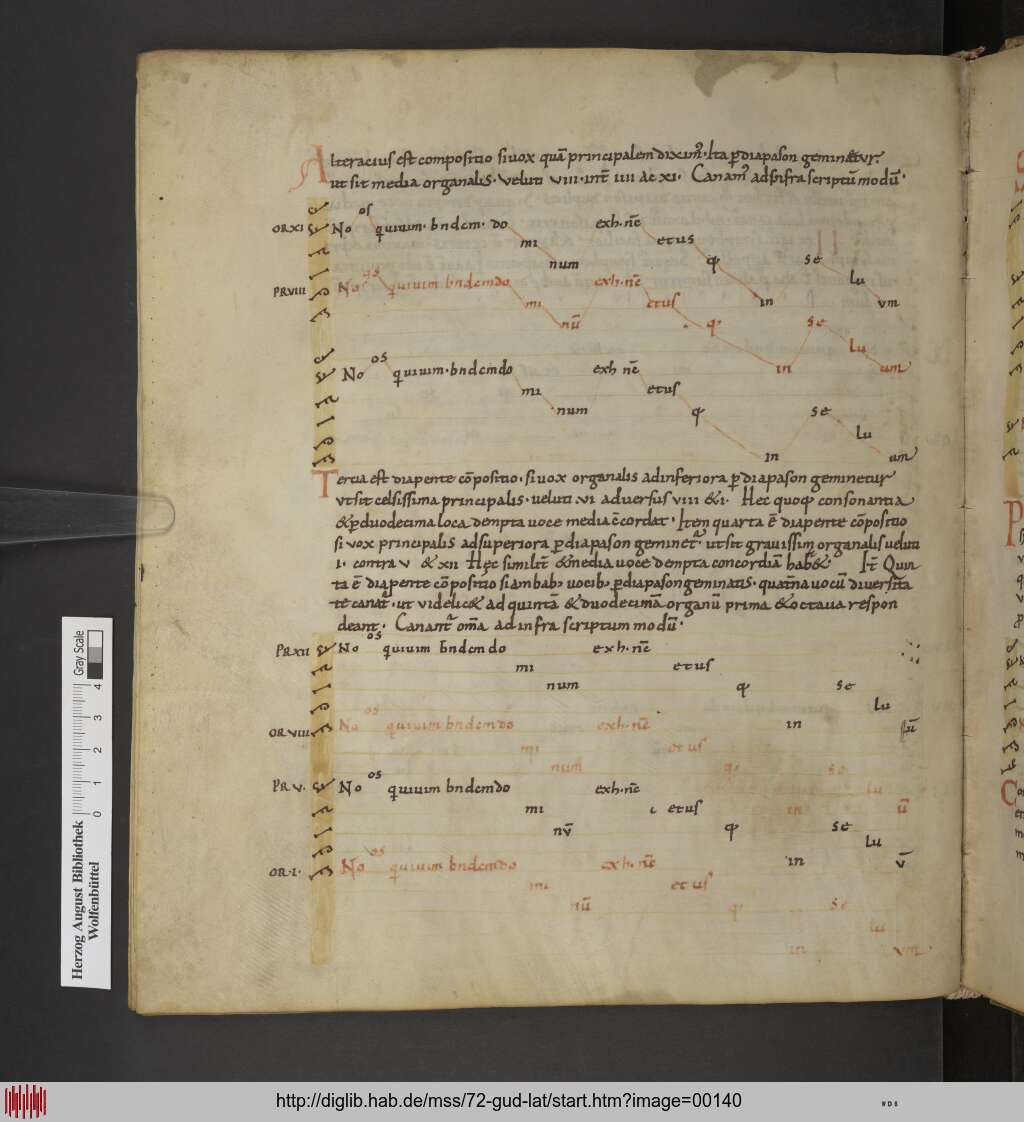 Alteraciuſ eſt compositio si uox quā principalem dixim᷒. Ita p̄ diapaſon geminetur.
ut sit media organalis. Veluti VIII. int̄ IIII ac XI. Canam᷒ ad inſra ſcriptū modū.
ORXI
No os quiuim. bndcm. do mi num exh. nē etus q; in se Lu um
PRVIII
No os quiuim bndcmdo mi nū exh. nē etuſ q; in se Lu um
No os quiuim. bndcmdo mi num exh nē etuſ q; in se Lu um
Tertia eſt diapente cōpoſitio. si uox organalis ad inferiora p̄ diapaſon geminetur
ut sit celſiſſima principalis. ueluti VI aduerſus VIII & I. Hec quoq; conſonantia
& p̄ duodecima loca dempta uoce media c̄cordat. Item quarta ē diapente cōpoſitio
si uox principalis ad superiora p̄ diapaſon geminet᷒. ut sit grauiſſim organalis ueluti
I. contra V & XII Hęc similit̄ & media uoce dempta concordiā hab&. It̄ Quin
ta ē diapente cōpoſitio si ambab; uocib; p̄ diapaſon geminatis. quat̄na uocū diuerſita
te canat᷒. ut uidelic& ad quintā & duodecimā organū prima & octaua reſpon
deant. Canant᷒ om̄a ad infra ſcriptum modū.
PRXII
No os quiuim bndcm do mi num exh. nē etuſ q; in se Lu ū
OR VIII
No os quiuim bndcmdo mi num exh. nē etuſ q; in se Lu ū
PR V.
No os quiuim bndcmdo mi nū exh. nē etuſ q; in se Lu ū
OR. I.
No os quiuim bndcmdo mi nū exh. nē etuſ q; in se Lu um
Gray Scale
0 1 2 3 4
Herzog August Bibliothek
Wolfenbüttel
http://diglib.hab.de/mss/72-gud-lat/start.htm?image=00140
WDB